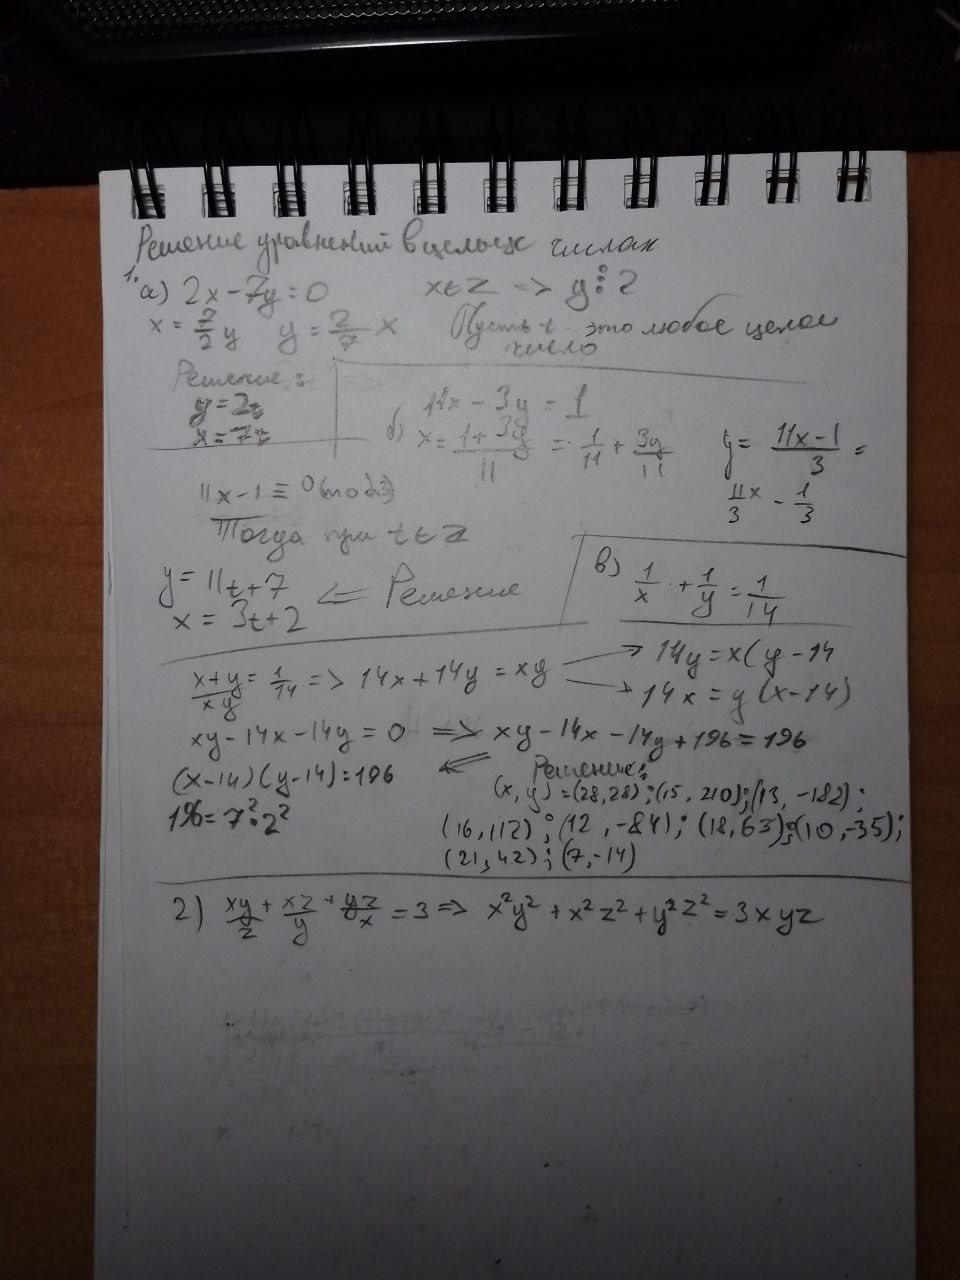 Решение уравнений в целых числах
1. а) 2x - 7y = 0   x ∈ Z => y ⋮ 2
x = 7/2 y   y = 2/7 x   Пусть t - это любое целое число
Решение:
y = 2t
x = 7t
б) 11x - 3y = 1
x = (1 + 3y)/11 = 1/11 + 3y/11   y = (11x - 1)/3 = 11x/3 - 1/3
11x - 1 ≡ 0 (mod 3)
Тогда при t ∈ Z
y = 11t + 7
x = 3t + 2   <= Решение
в) 1/x + 1/y = 1/14
(x + y)/xy = 1/14 => 14x + 14y = xy → 14y = x(y - 14
→ 14x = y(x - 14)
xy - 14x - 14y = 0 => xy - 14x - 14y + 196 = 196
(x - 14)(y - 14) = 196 <= Решение:
196 = 7² · 2²   (x, y) = (28, 28); (15, 210); (13, -182);
(16, 112); (12, -84); (18, 63); (10, -35);
(21, 42); (7, -14)
2) xy/z + xz/y + yz/x = 3 => x²y² + x²z² + y²z² = 3xyz